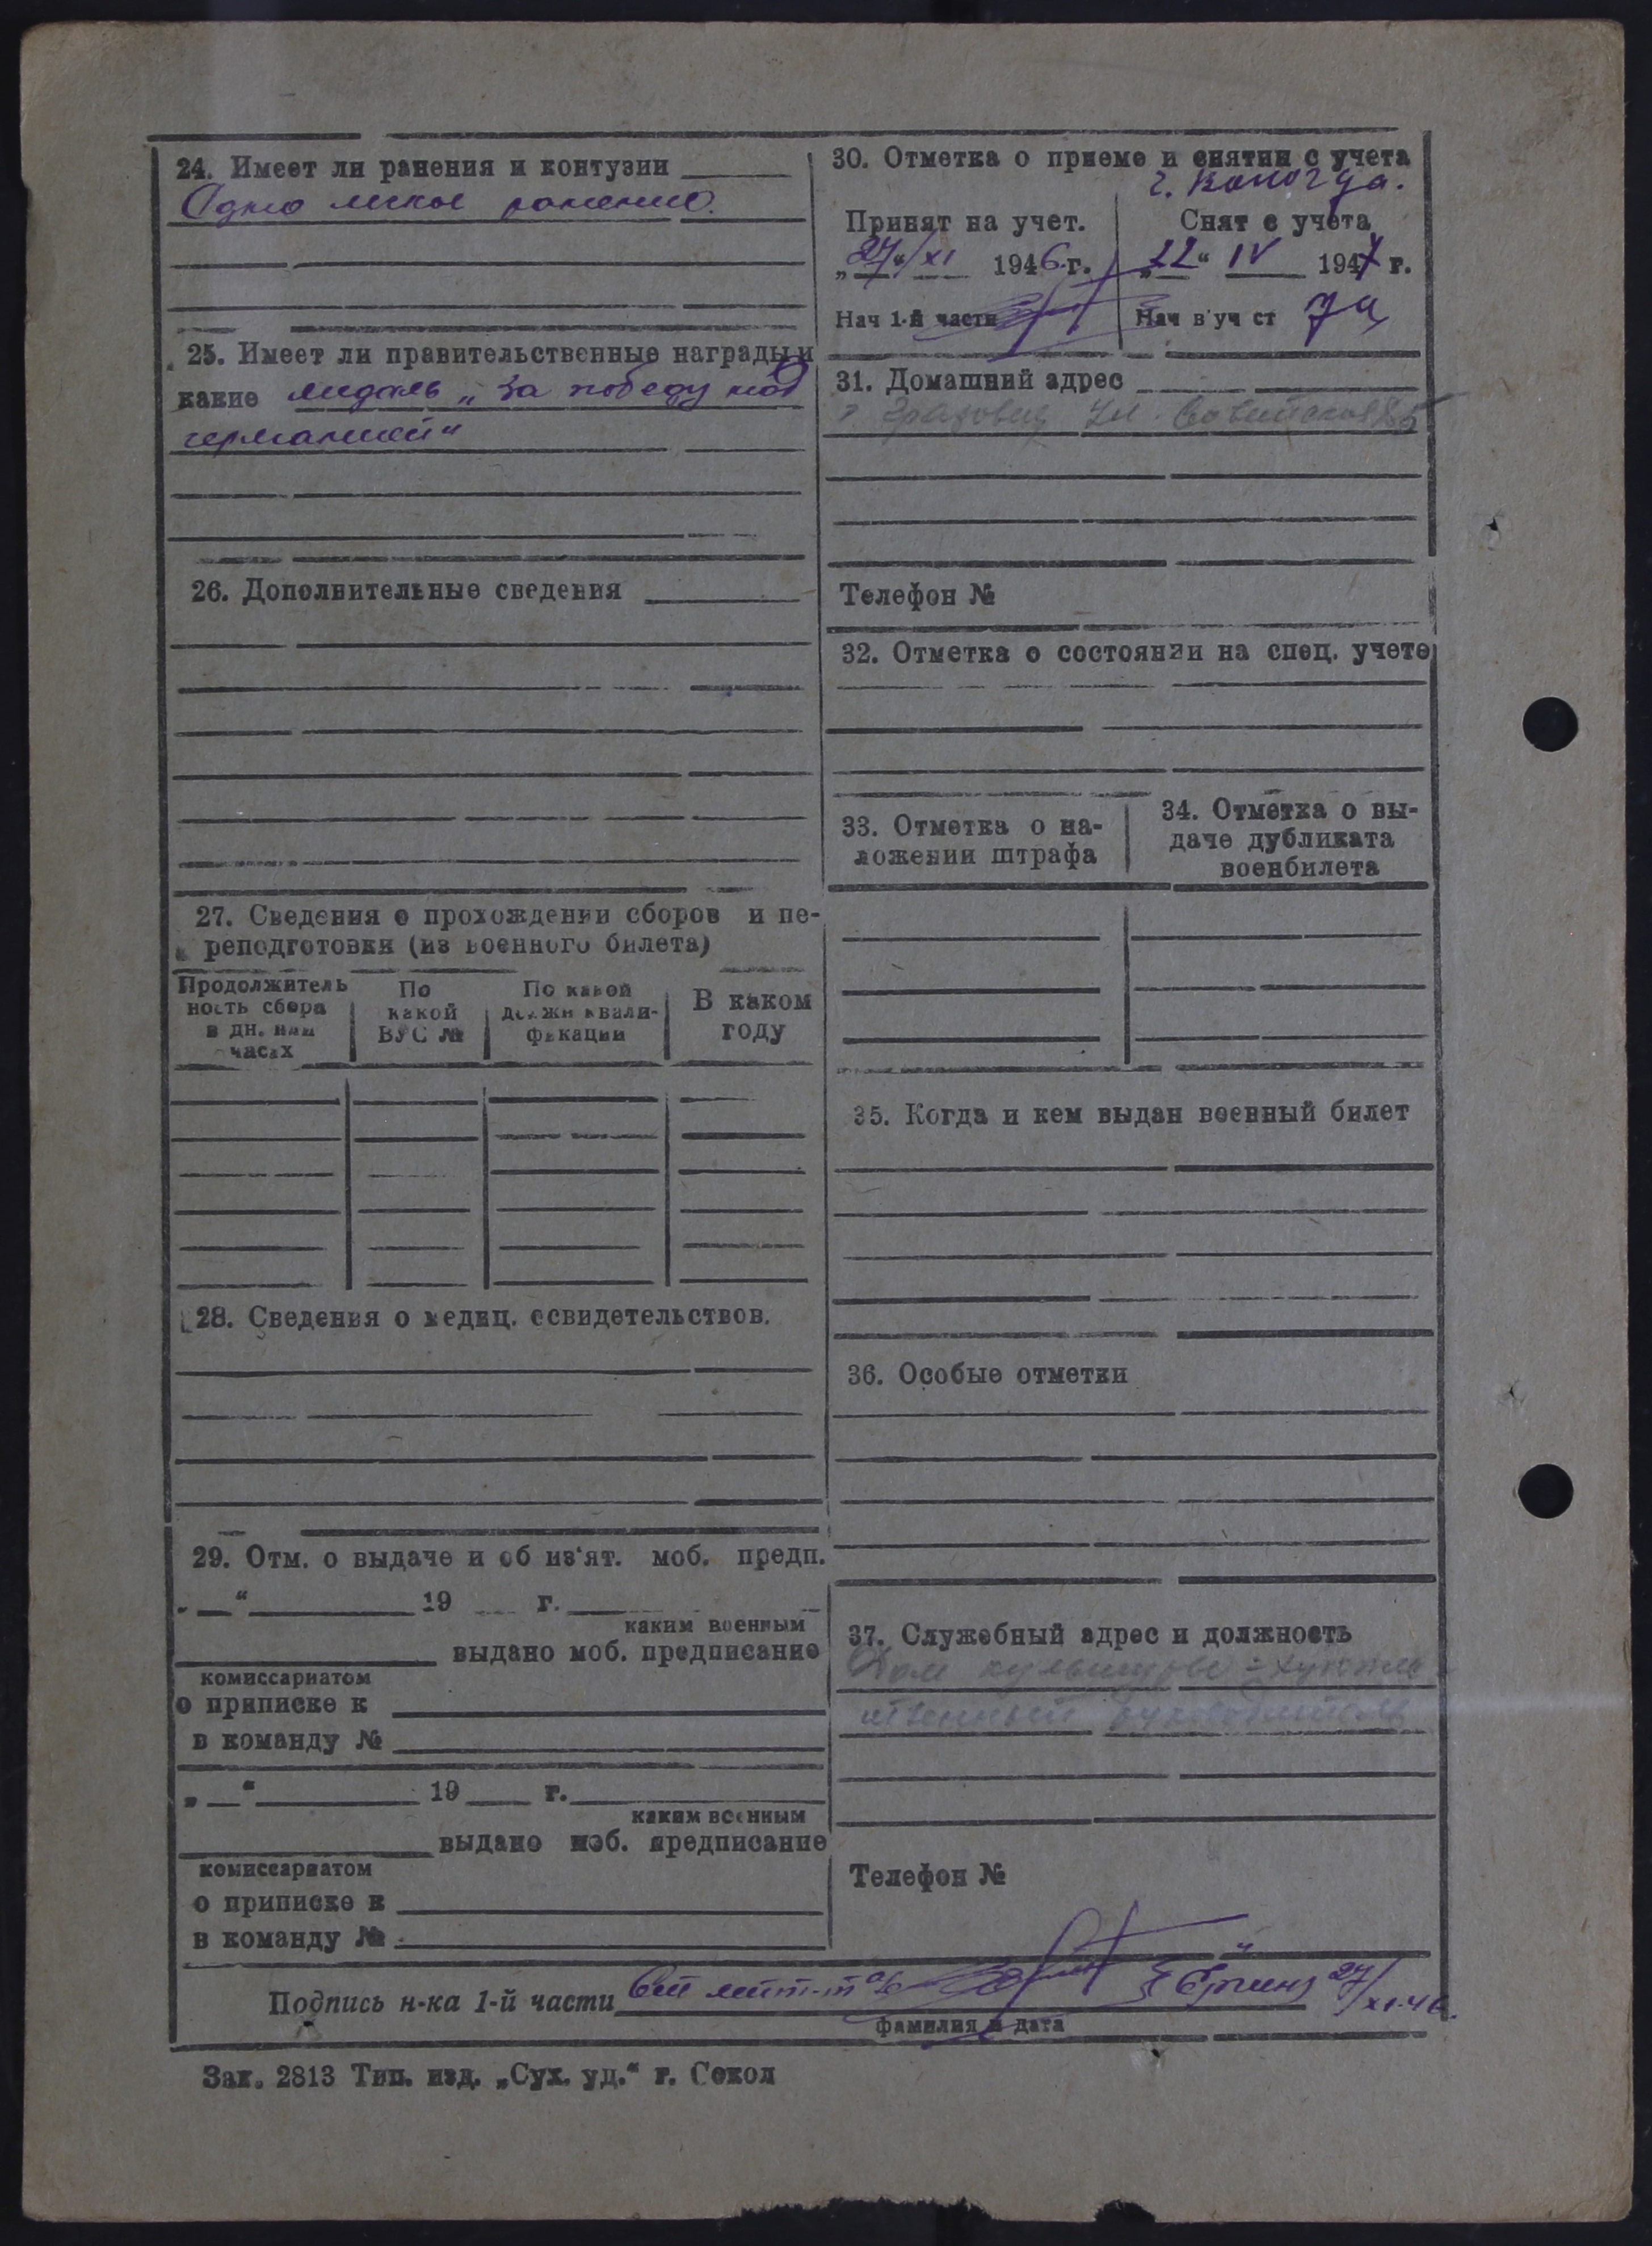 24. Имеет ли ранения и контузии
Одно легкое ранение.
25. Имеет ли правительственные награды и
какие медаль „За победу над
германией"
26. Дополнительные сведения
27. Сведения о прохождении сборов и пе-
реподготовки (из военного билета)
Продолжитель
ность сбора
в дн. или
часах
По
какой
ВУС №
По какой
должн квали-
фикации
В каком
году
28. Сведения о медиц. освидетельствов.
29. Отм. о выдаче и об из'ят. моб. предп.
„ “ 19 г.
каким военным
выдано моб. предписание
комиссариатом
о приписке к
в команду №
„ “ 19 г.
каким военным
выдано моб. предписание
комиссариатом
о приписке к
в команду №
30. Отметка о приеме и снятии с учета
г. Вологда.
Принят на учет.
„27“/XI 1946 г.
Нач 1-й части
Снят с учета
„22“ IV 1947 г.
Нач в уч ст
31. Домашний адрес
г Грязовец Ул. Советская 85
Телефон №
32. Отметка о состоянии на спец. учете
33. Отметка о на-
ложении штрафа
34. Отметка о вы-
даче дубликата
военбилета
35. Когда и кем выдан военный билет
36. Особые отметки
37. Служебный адрес и должность
Дом культуры - художе-
ственный руководитель
Телефон №
Подпись н-ка 1-й части 27/XI-46.
фамилия и дата
Зак. 2813 Тип. изд. „Сух. уд.“ г. Сокол